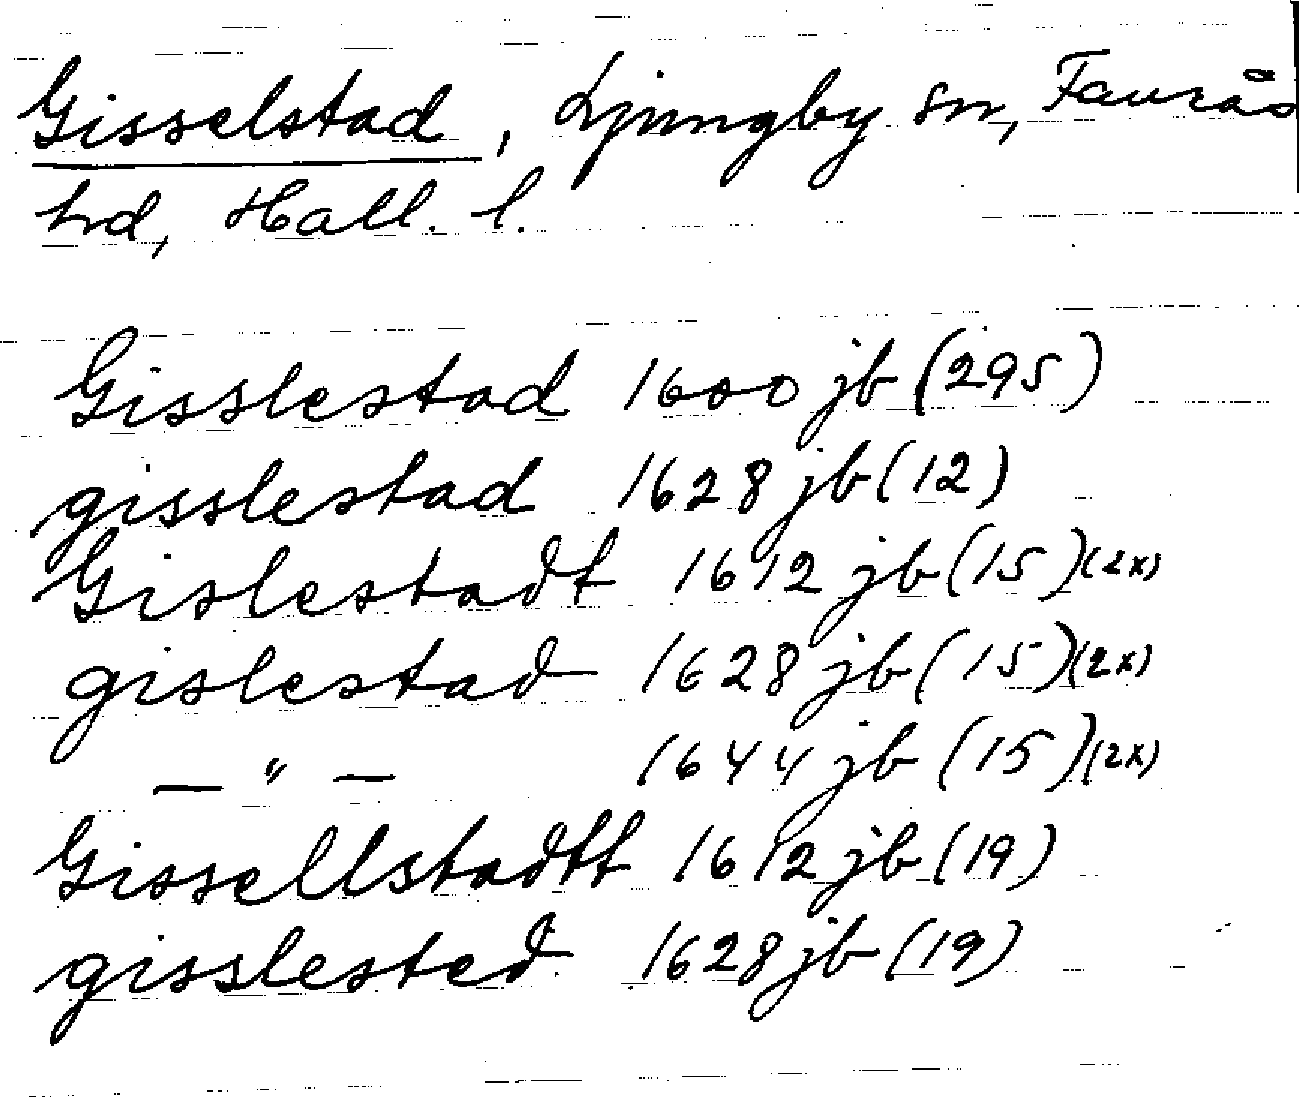 Gisselstad, Ljungby sn, Faurås
hd, Hall. l.
Gisslestad 1600 jb (295)
gisslestad 1628 jb (12)
Gislestadt 1612 jb (15) (2x)
gislestad 1628 jb (15) (2x)
— " — 1644 jb (15) (2x)
Gissellstadtt 1612 jb (19)
gisslested 1628 jb (19)